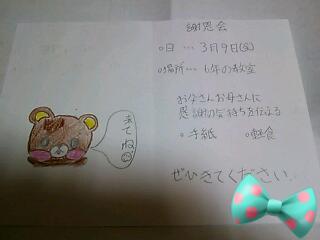 謝恩会
○日 … 3月9日(金)
○場所… 6年の教室
お父さんお母さんに
感謝の気持ちを伝える
○手紙 ○軽食
ぜひきてください。
来てね